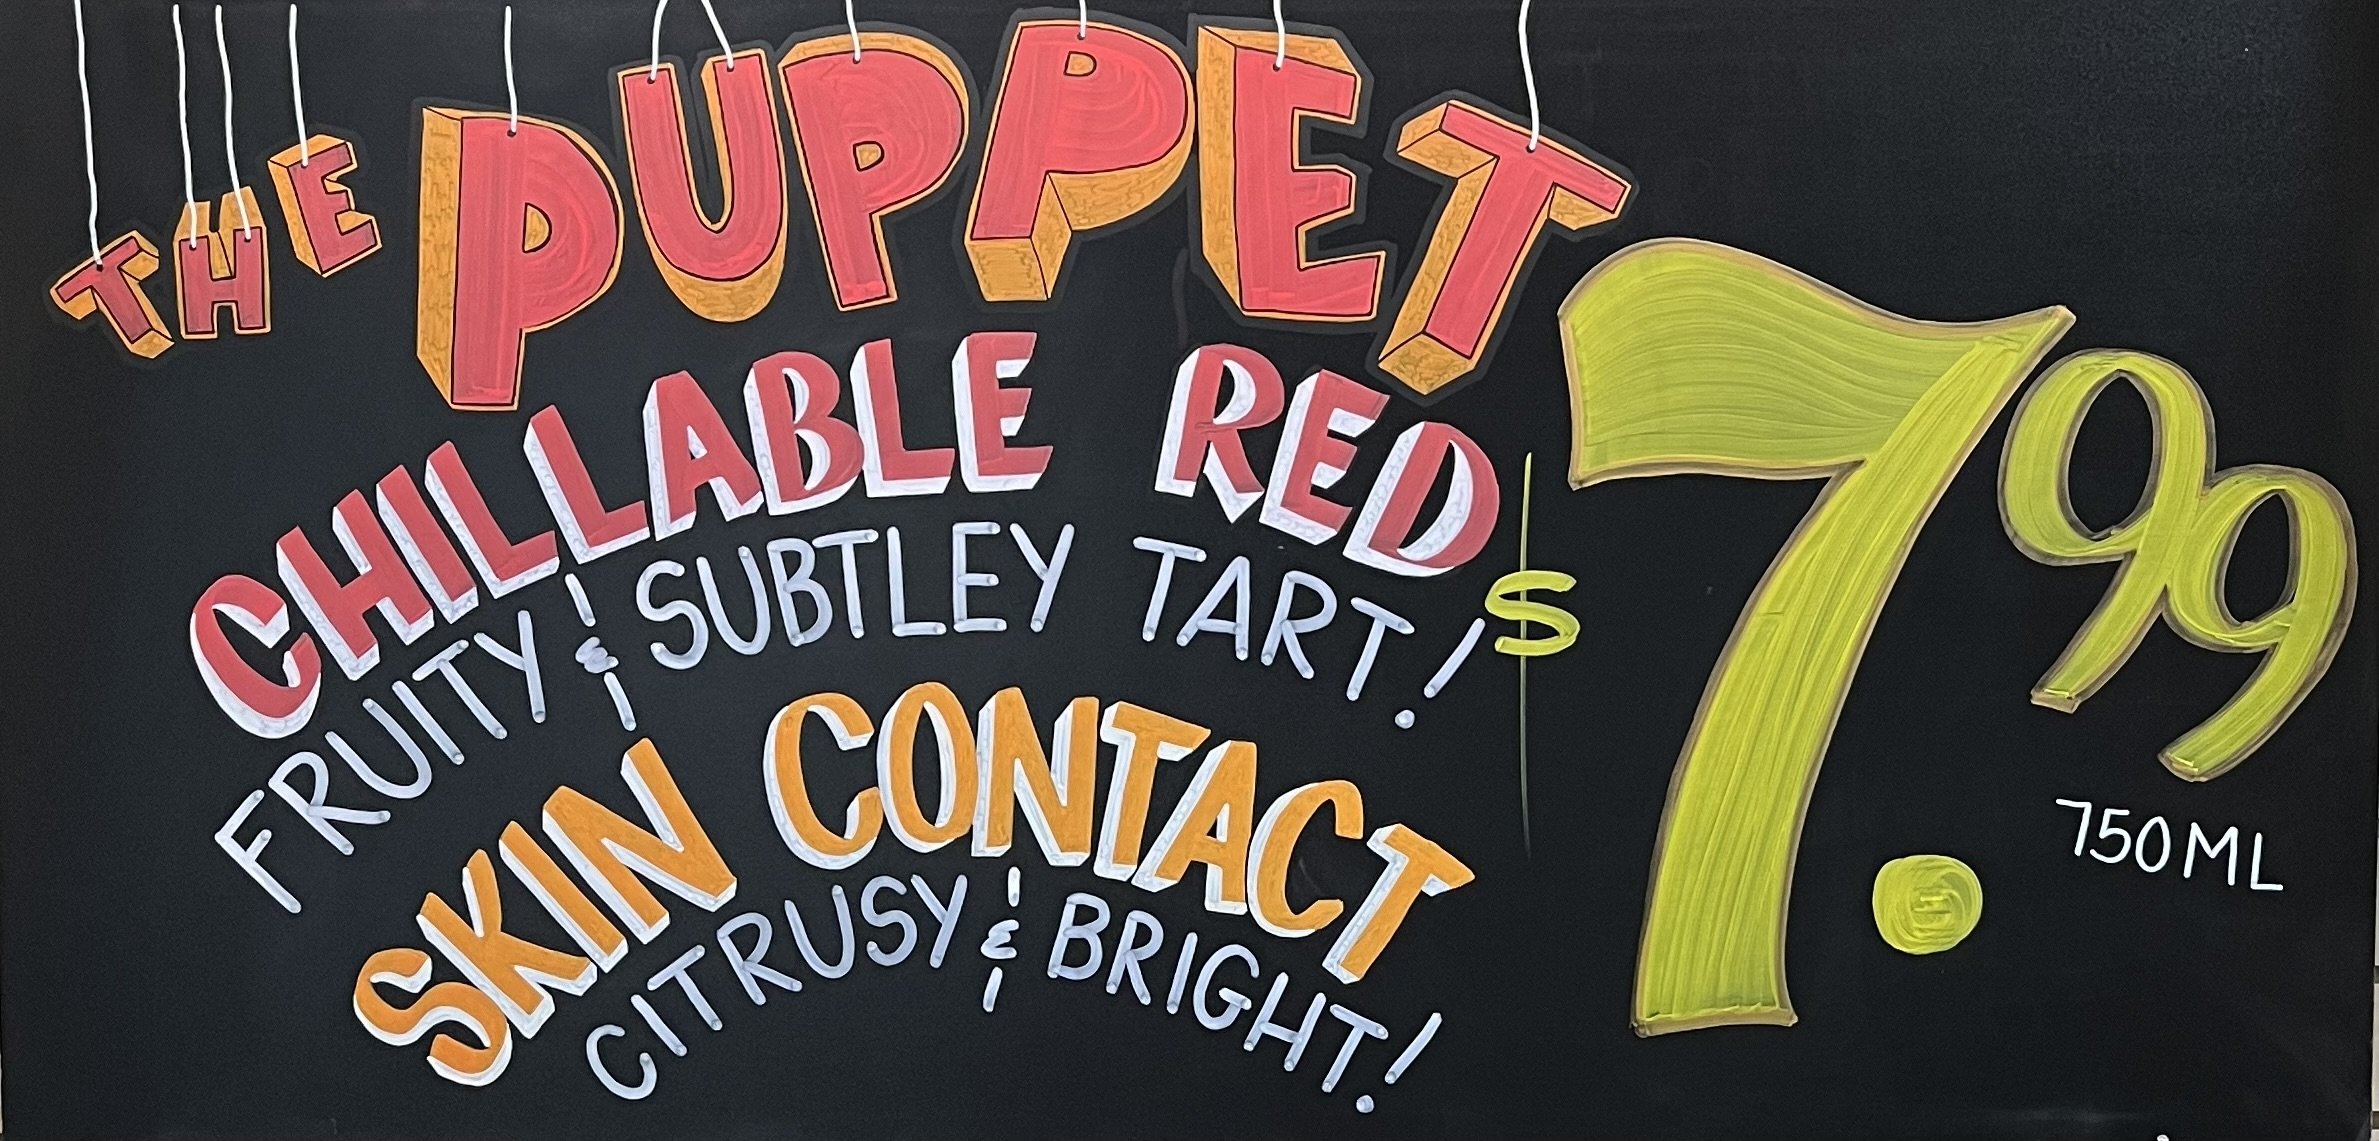 THE PUPPET
CHILLABLE RED
FRUITY & SUBTLEY TART!
SKIN CONTACT
CITRUSY & BRIGHT!
$7.99
750ML